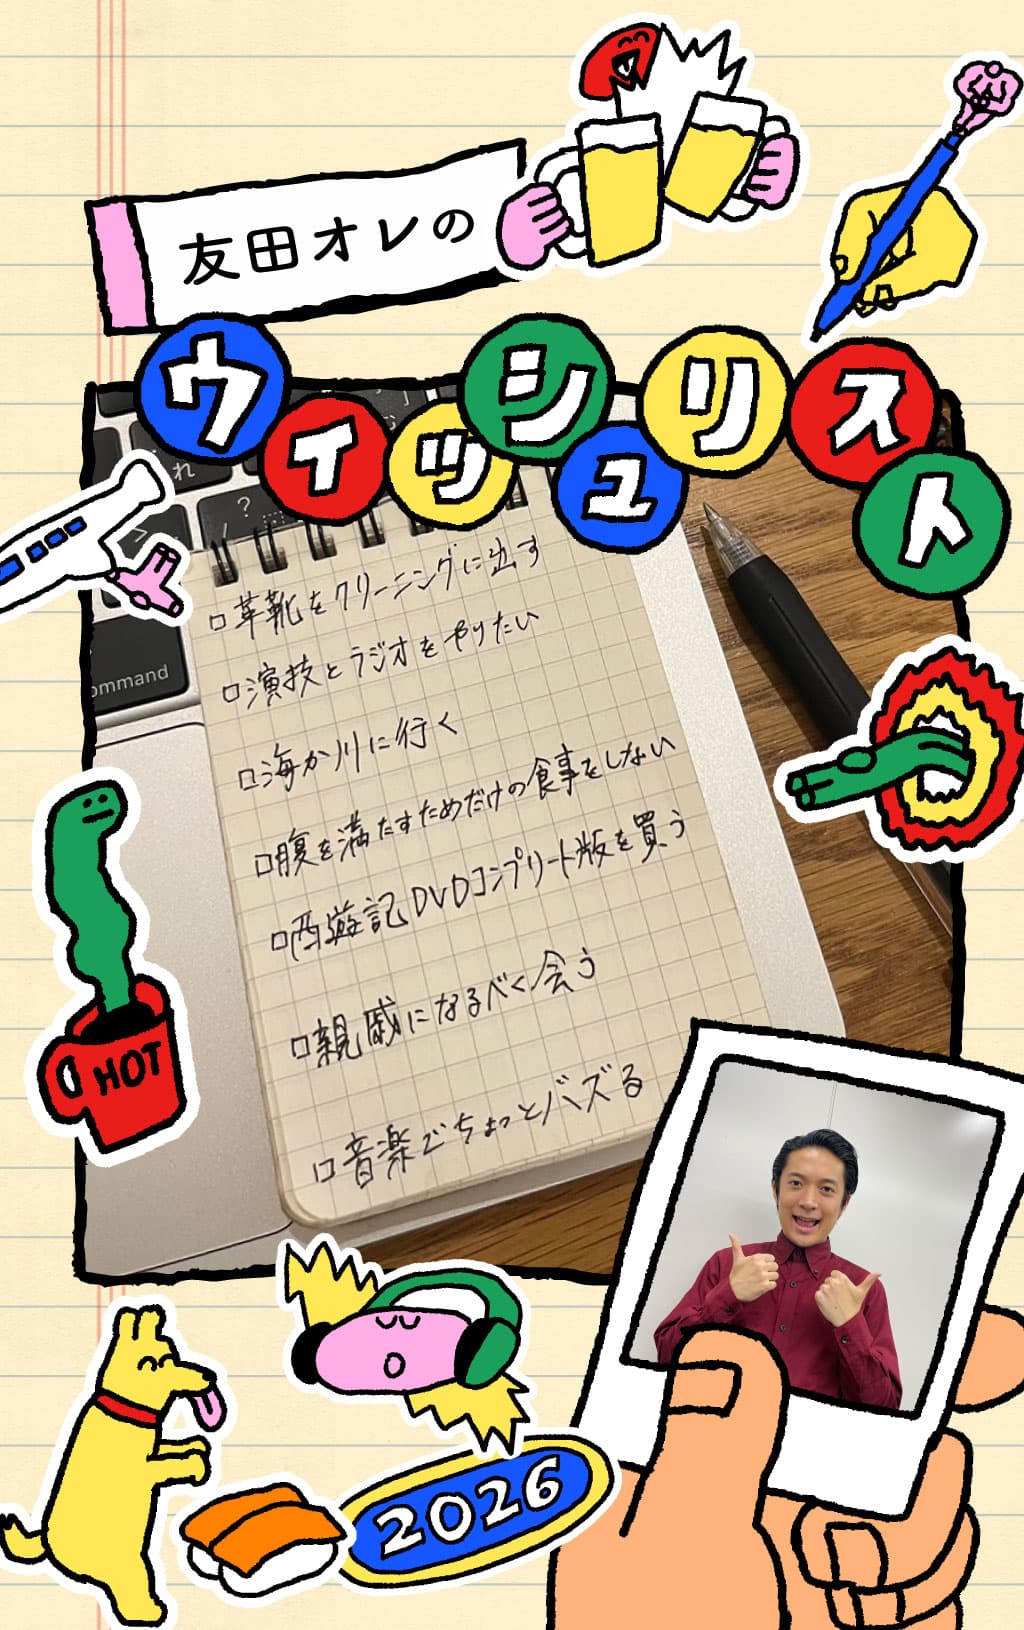 友田オレの
ウィッシュリスト
れ
?
command
□革靴をクリーニングに出す
□演技とラジオをやりたい
□海か川に行く
□腹を満たすためだけの食事をしない
□西遊記DVDコンプリート版を買う
□親戚になるべく会う
□音楽でちょっとバズる
HOT
2026